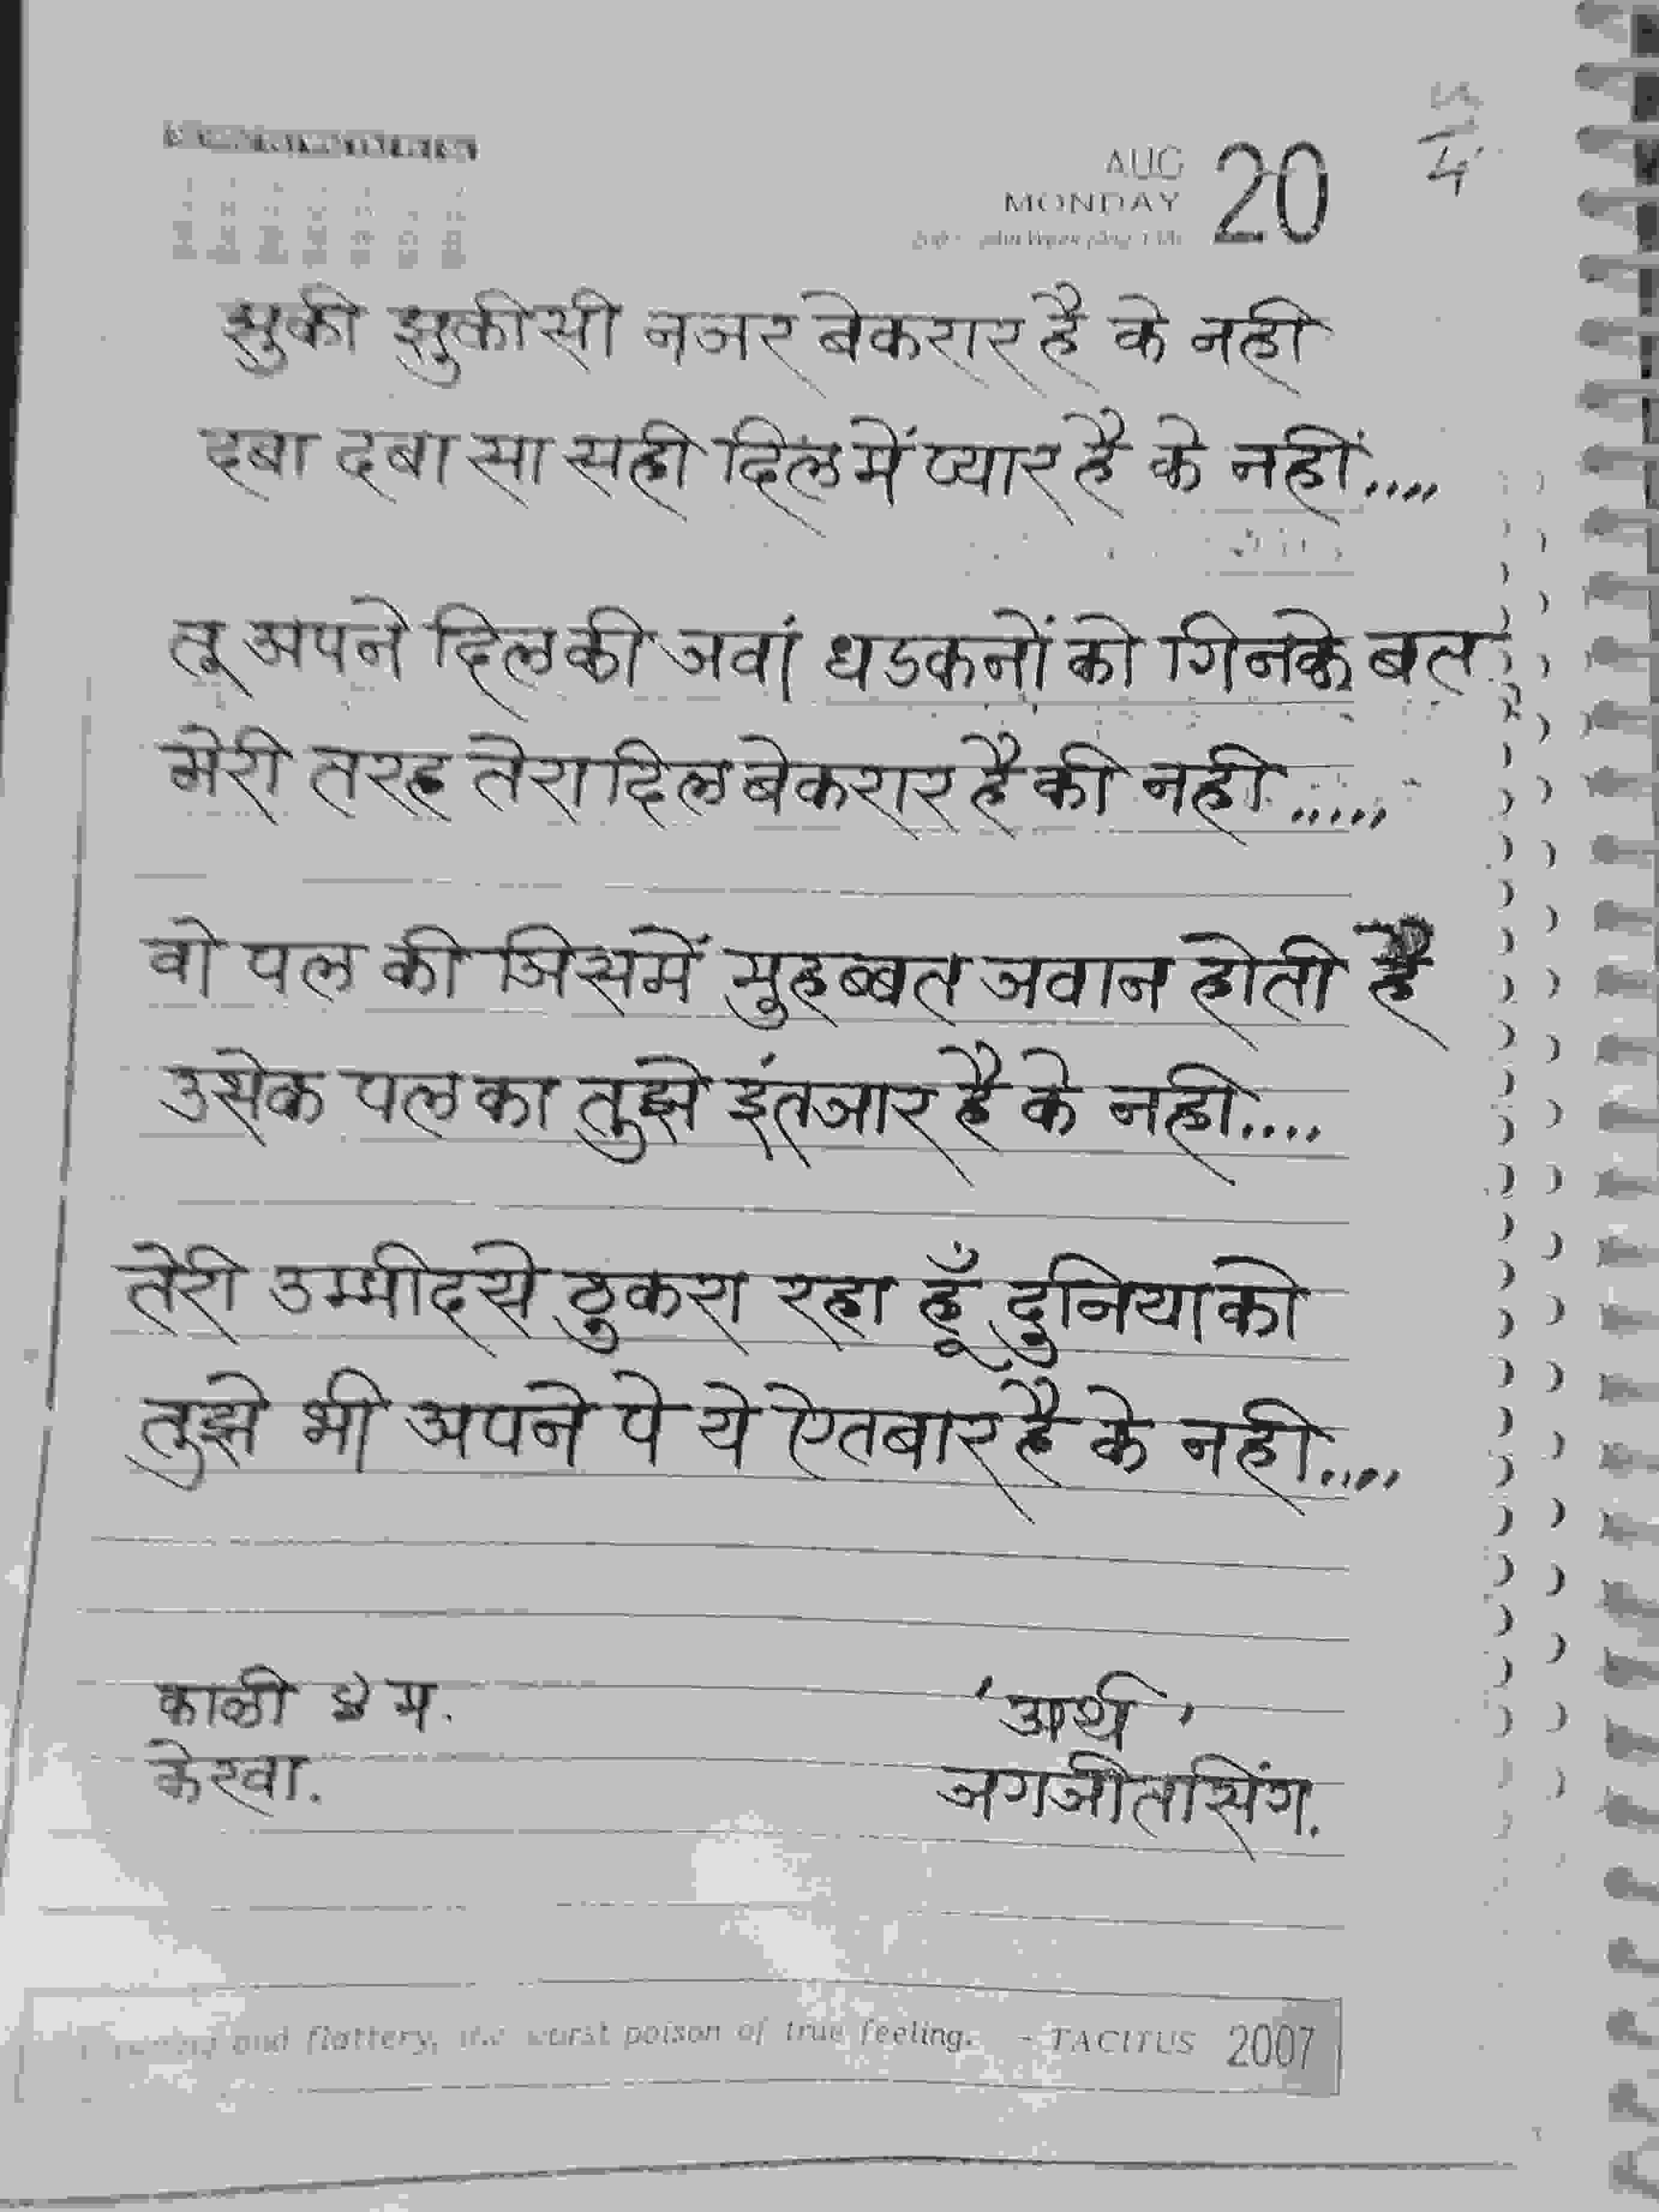 AUG 20
MONDAY
झुकी झुकीसी नजर बेकरार है के नही
दबा दबा सा सही दिल में प्यार है के नहीं....
तू अपने दिल की जवां धडकनों को गिनके बता
मेरी तरह तेरा दिल बेकरार है की नही.....
वो पल की जिसमें मुहब्बत जवान होती है
उसेक पल का तुझे इंतजार है के नही....
तेरी उम्मीदसे ठुकरा रहा हूँ दुनिया को
तुझे भी अपने पे ये ऐतबार है के नही....
काळी म.
केरवा.
'अर्थ'
जगजीतसिंग.
and flattery, the worst poison of true feeling. - TACITUS 2007